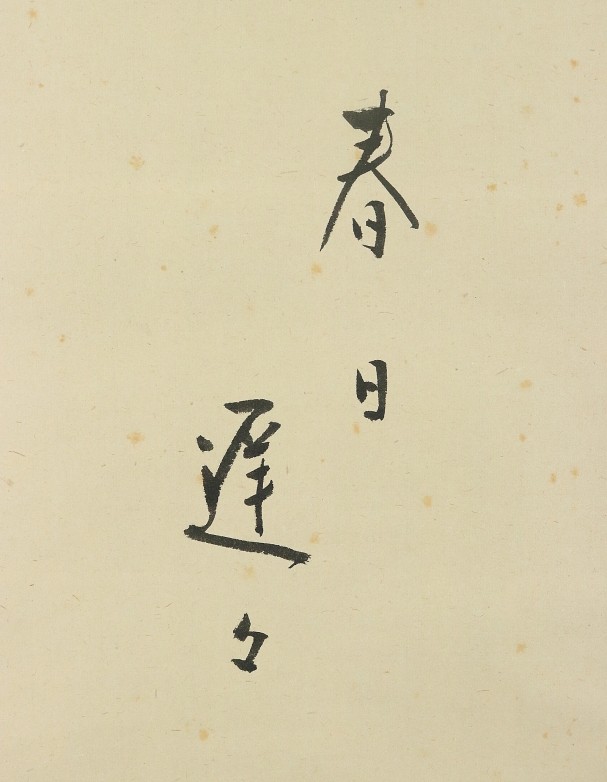 春日
遅々